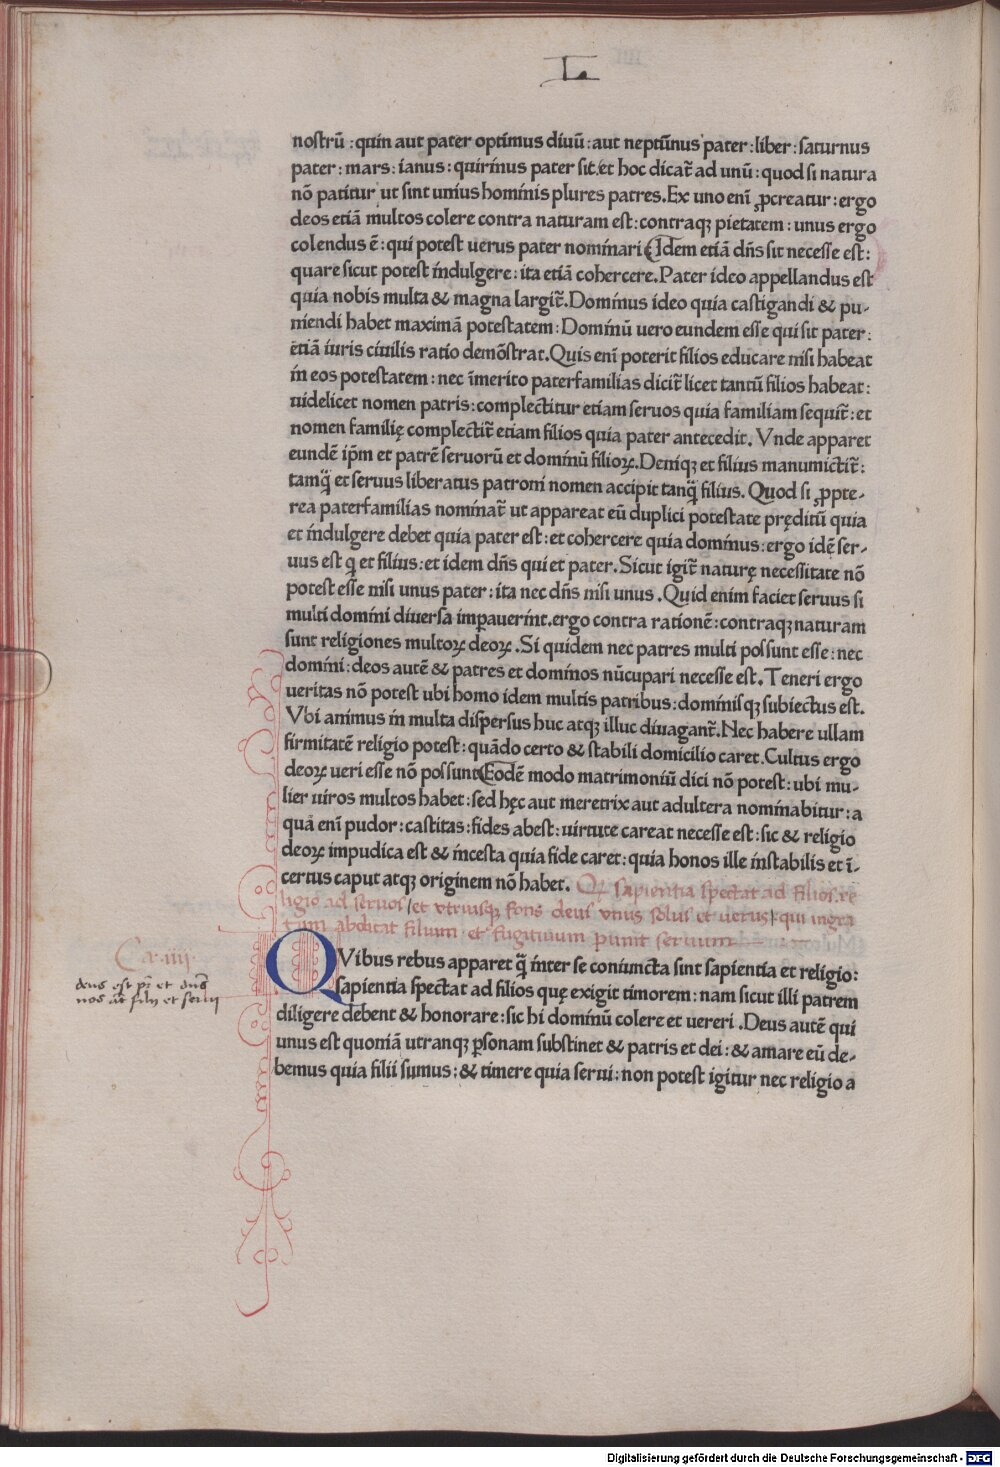 L.
nostrū :quin aut pater optimus diuū:aut neptūnus pater:liber:saturnus
pater:mars:ianus:quirinus pater sit.et hoc dicat̄ ad unū:quod si natura
nō patitur ut sint unius hominis plures patres.Ex uno enī ꝓcreatur:ergo
deos etiā multos colere contra naturam est:contraqꝫ pietatem:unus ergo
colendus ē:qui potest uerus pater nominari Idem etiā dn̄s sit necesse est:
quare sicut potest indulgere:ita etiā cohercere.Pater ideo appellandus est
quia nobis multa & magna largit̄.Dominus ideo quia castigandi & pu-
niendi habet maximā potestatem:Dominū uero eundem esse qui sit pater:
etiā iuris ciuilis ratio demōstrat.Quis enī poterit filios educare nisi habeat
in eos potestatem:nec īmerito paterfamilias dicit̄ licet tantū filios habeat:
uidelicet nomen patris:complectitur etiam seruos quia familiam sequit̄:et
nomen familię complectit̄ etiam filios quia pater antecedit. Vnde apparet
eundē ip̄m et patrē seruorū et dominū filioꝝ.Deniqꝫ et filius manumictit̄:
tamq̄ et seruus liberatus patroni nomen accipit tanq̄ filius. Quod si ꝓpte-
rea paterfamilias nominat̄ ut appareat eū duplici potestate pręditū quia
et indulgere debet quia pater est:et cohercere quia dominus:ergo idē ser-
uus est q et filius:et idem dn̄s qui et pater.Sicut igit̄ naturę necessitate nō
potest esse nisi unus pater:ita nec dn̄s nisi unus .Quid enim faciet seruus si
multi domini diuersa imꝑauerint.ergo contra rationē:contraqꝫ naturam
sunt religiones multoꝝ deoꝝ.Si quidem nec patres multi possunt esse:nec
domini:deos autē & patres et dominos nūcupari necesse est.Teneri ergo
ueritas nō potest ubi homo idem multis patribus:dominisqꝫ subiectus est.
Vbi animus in multa dispersus huc atqꝫ illuc diuagant̄.Nec habere ullam
firmitatē religio potest:quādo certo & stabili domicilio caret.Cultus ergo
deoꝝ ueri esse nō possunt Eodē modo matrimoniū dici nō potest:ubi mu-
lier uiros multos habet:sed hęc aut meretrix aut adultera nominabitur:a
qua enī pudor:castitas:fides abest:uirtute careat necesse est:sic & religio
deoꝝ impudica est & incesta quia fide caret:quia honos ille instabilis et ī-
certus caput atqꝫ originem nō habet. Qꝫ sapientia spectat ad filios.re
ligio ad seruos/et vtriusqꝫ fons deus vnus solus et uerus:qui ingra
tum abdicat filium et fugitiuum punit seruum
Ca. iiii.
QVibus rebus apparet q̄ inter se coniuncta sint sapientia et religio:
deus est pr̄ et dn̄s
nos at̄ filii et serui
sapientia spectat ad filios quę exigit timorem:nam sicut illi patrem
diligere debent & honorare:sic hi dominū colere et uereri .Deus autē qui
unus est quoniā utranqꝫ ꝑsonam substinet & patris et dei:& amare eū de-
bemus quia filii sumus:& timere quia serui:non potest igitur nec religio a
Digitalisierung gefördert durch die Deutsche Forschungsgemeinschaft - DFG